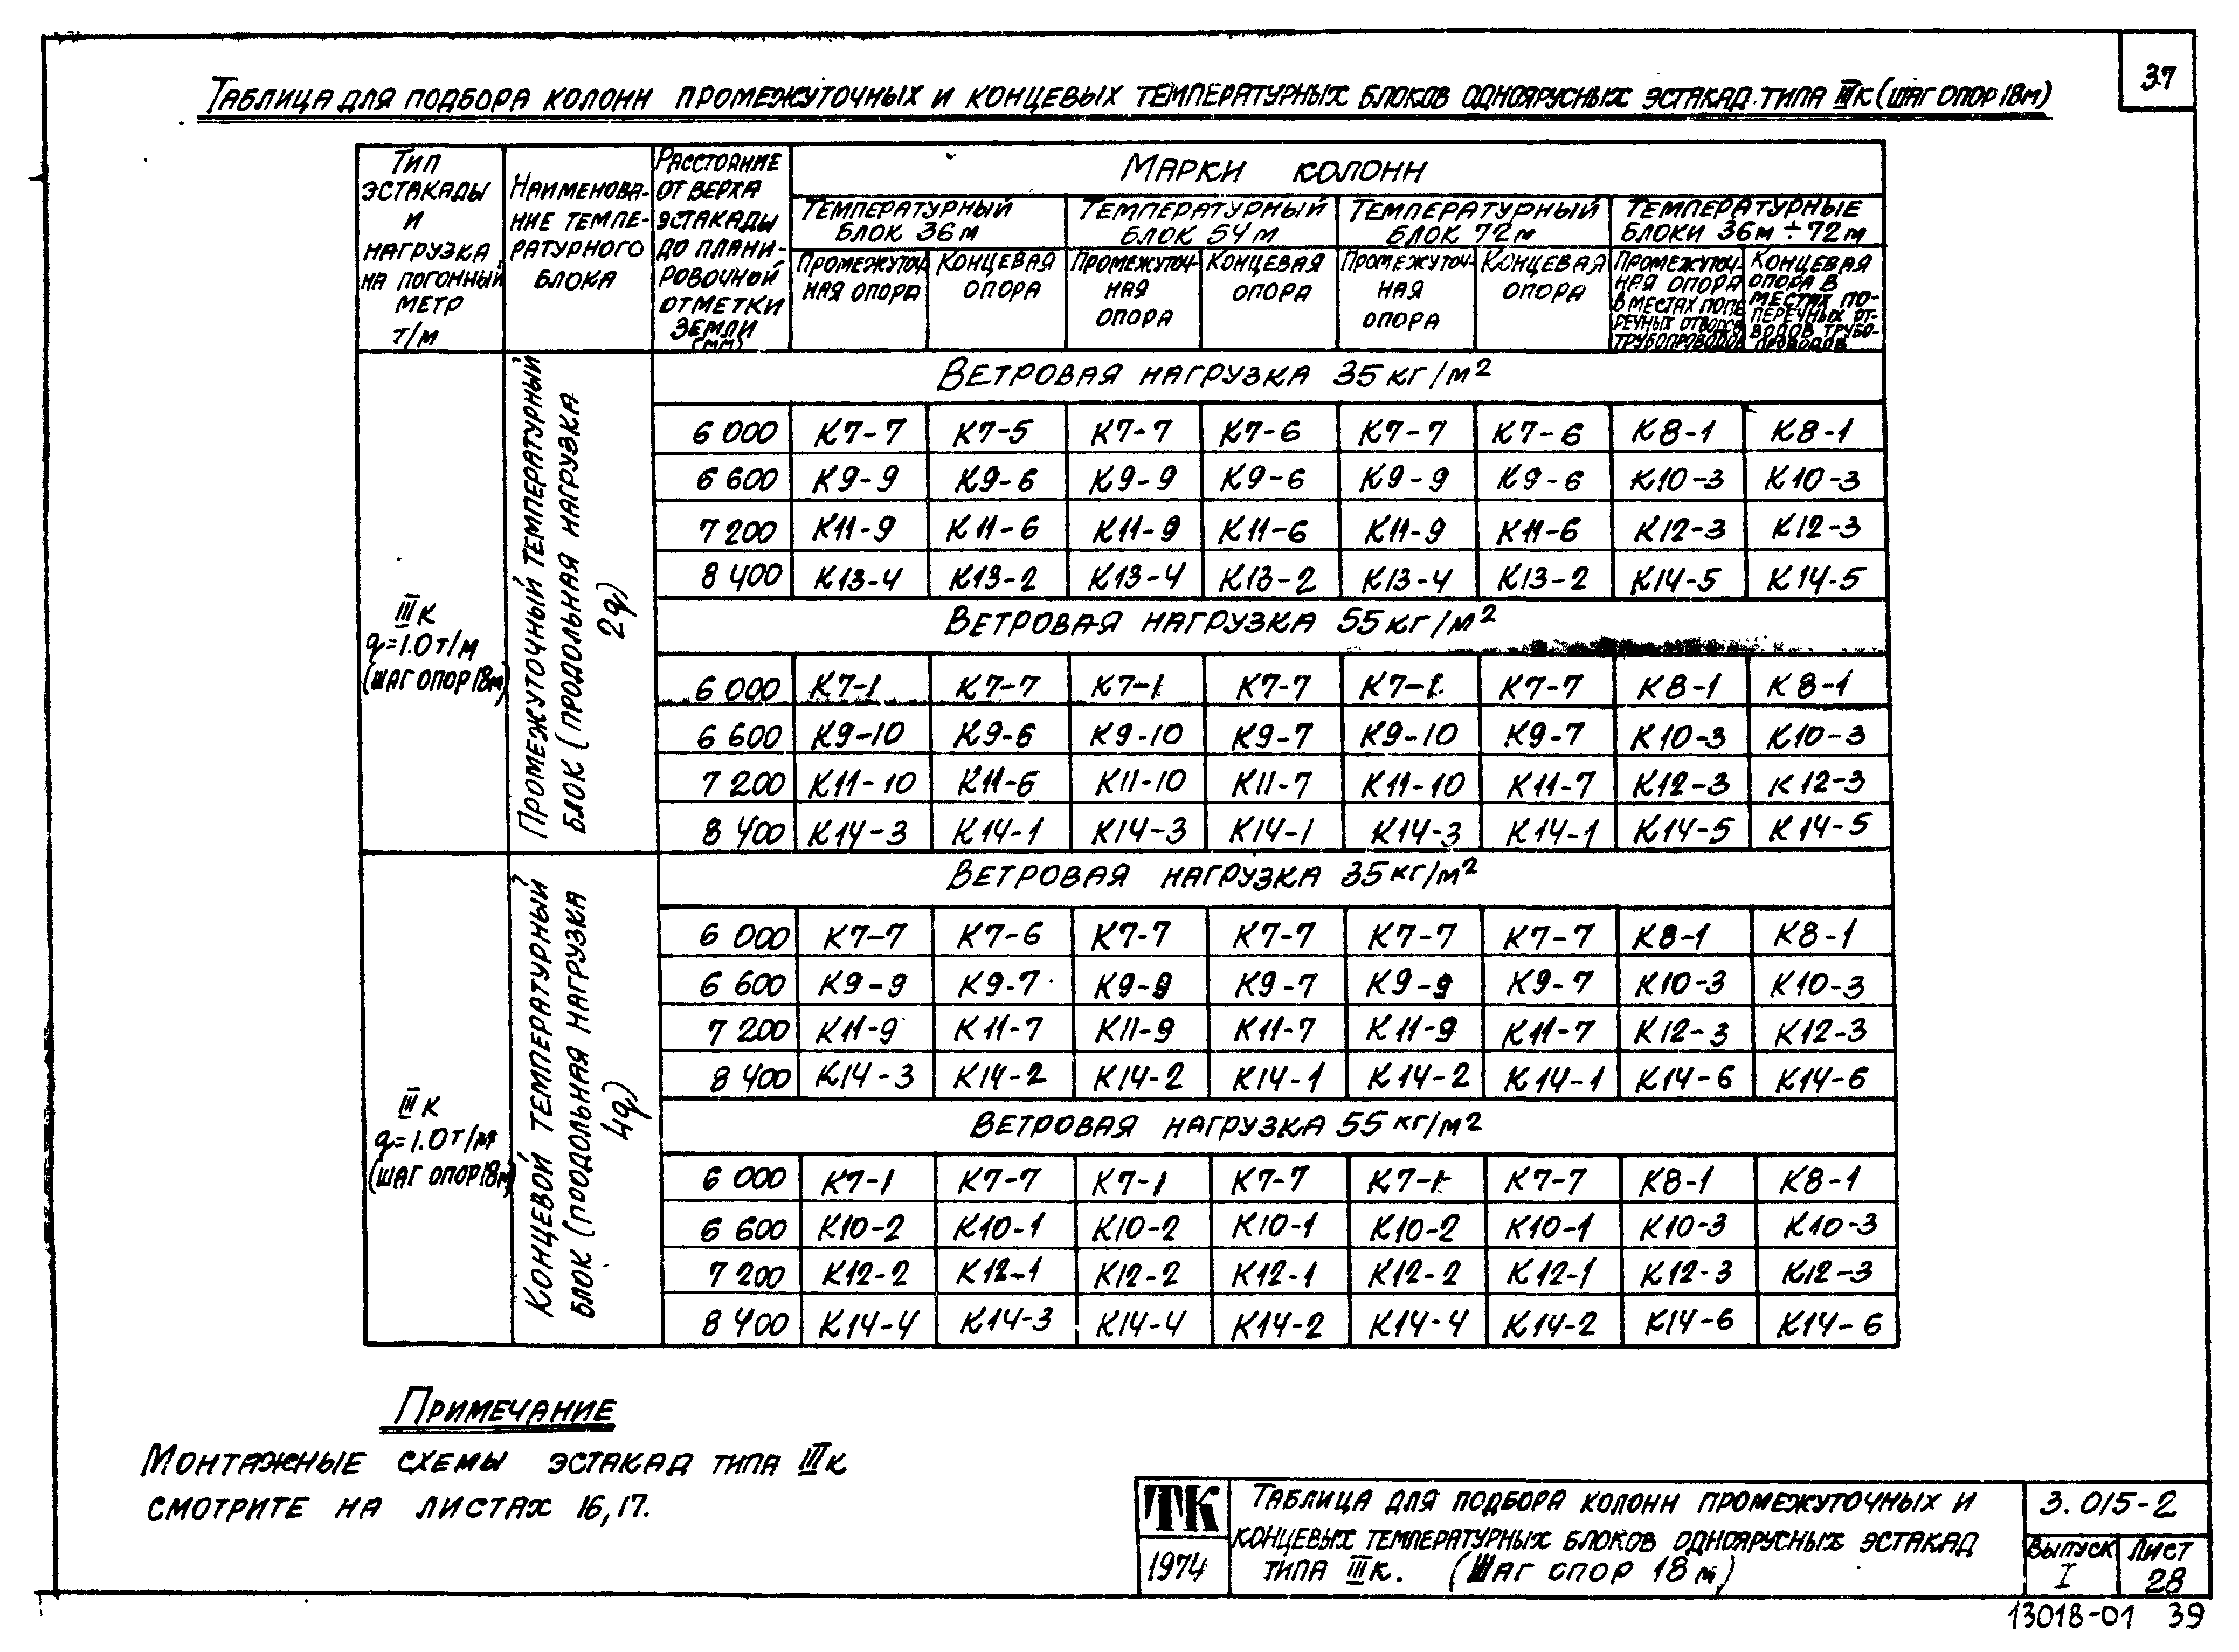 37
Таблица для подбора колонн промежуточных и концевых температурных блоков одноярусных эстакад типа IIIк (шаг опор 18м)
Тип эстакады и нагрузка на погонный метр т/м
Наименова-
ние темпе-
ратурного
блока
Расстояние
от верха
эстакады
до плани-
ровочной
отметки
земли
(мм)
Марки колонн
Температурный блок 36м
Температурный блок 54м
Температурный блок 72м
Температурные блоки 36м ÷ 72м
Промежуточ-
ная опора
Концевая
опора
Промежуточ-
ная
опора
Концевая
опора
Промежуточ-
ная
опора
Концевая
опора
Промежуточ-
ная опора
в местах попе
речных отводов
трубопроводов
Концевая
опора в
местах по-
перечных от-
водов трубо-
проводов
IIIк
q=1.0т/м
(шаг опор 18м)
Промежуточный температурный
блок (продольная нагрузка
2q)
Ветровая нагрузка 35кг/м²
6 000 К7-7 К7-5 К7-7 К7-6 К7-7 К7-6 К8-1 К8-1
6 600 К9-9 К9-6 К9-9 К9-6 К9-9 К9-6 К10-3 К10-3
7 200 К11-9 К11-6 К11-9 К11-6 К11-9 К11-6 К12-3 К12-3
8 400 К13-4 К13-2 К13-4 К13-2 К13-4 К13-2 К14-5 К14-5
Ветровая нагрузка 55кг/м²
6 000 К7-1 К7-7 К7-1 К7-7 К7-1 К7-7 К8-1 К8-1
6 600 К9-10 К9-6 К9-10 К9-7 К9-10 К9-7 К10-3 К10-3
7 200 К11-10 К11-6 К11-10 К11-7 К11-10 К11-7 К12-3 К12-3
8 400 К14-3 К14-1 К14-3 К14-1 К14-3 К14-1 К14-5 К14-5
IIIк
q=1.0т/м
(шаг опор 18м)
Концевой температурный
блок (продольная нагрузка
4q)
Ветровая нагрузка 35кг/м²
6 000 К7-7 К7-6 К7-7 К7-7 К7-7 К7-7 К8-1 К8-1
6 600 К9-9 К9-7 К9-9 К9-7 К9-9 К9-7 К10-3 К10-3
7 200 К11-9 К11-7 К11-9 К11-7 К11-9 К11-7 К12-3 К12-3
8 400 К14-3 К14-2 К14-2 К14-1 К14-2 К14-1 К14-6 К14-6
Ветровая нагрузка 55 кг/м²
6 000 К7-1 К7-7 К7-1 К7-7 К7-1 К7-7 К8-1 К8-1
6 600 К10-2 К10-1 К10-2 К10-1 К10-2 К10-1 К10-3 К10-3
7 200 К12-2 К12-1 К12-2 К12-1 К12-2 К12-1 К12-3 К12-3
8 400 К14-4 К14-3 К14-4 К14-2 К14-4 К14-2 К14-6 К14-6
Примечание
Монтажные схемы эстакад типа IIIк
смотрите на листах 16,17.
ТК
1974
Таблица для подбора колонн промежуточных и
концевых температурных блоков одноярусных эстакад
типа IIIк. (Шаг опор 18м)
3.015-2
Выпуск
I
Лист
28
13018-01 39